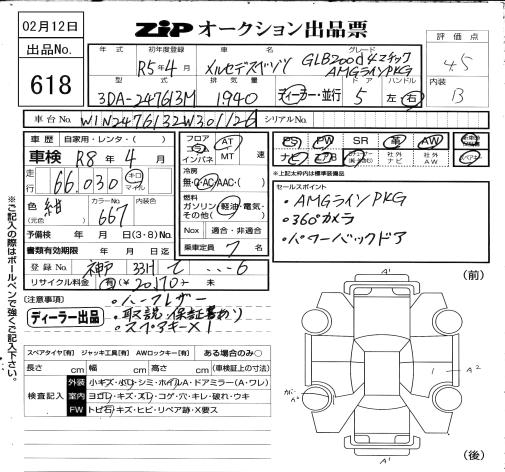 02月12日
ZiP オークション出品票
出品No. 618
年式 初年度登録 車名 グレード 評価点
R5年4月 メルセデスベンツ GLB200d 4マチック AMGラインPKG 4.5
型式 排気量 ドア ハンドル 内装
3DA-247613M 1940 ディーラー・並行 5 左・右 B
車台No. W1N2476132W301126 シリアルNo.
車歴 自家用・レンタ・( )
車検 R8年4月
走行 66,030 キロ マイル
色(元色) 紺 カラーNo. 667 内装色
予備検 年 月 日(3・8)の
書類有効期限 年 月 日迄
登録No. 神戸 331 て ・・・6
リサイクル料金 有(¥20,170) ・ 未
フロア コラム インパネ AT MT 速
冷房 無・C・AC・AAC・( )
燃料 ガソリン・軽油・電気・その他( )
Nox 適合・非適合
乗車定員 7 名
PS PW SR 革 AW
ナビ エアB 社外ナビ 社外AW
※上記太わ内は標準装備品
セールスポイント
・AMGラインPKG
・360°カメラ
・パワーバックドア
(注意事項)
ディーラー出品
・取説・保証書あり
・スペアキー×1
※ご記入の際はボールペンで強くご記入下さい。
スペアタイヤ[有] ジャッキ工具[有] AWロックキー[有] ある場合のみ○
長さ cm 幅 cm 高さ cm (車検証上の寸法)
検査記入 外装 小キズ・小凹・シミ・ホイルA・ドアミラー(A・ワレ)
室内 ヨゴレ・キズ・スレ・コゲ・穴・キレ・破れ・ウキ
FW トビ石・キズ・ヒビ・リペア跡・X要ス
(前)
A¹
A²
A¹
(後)